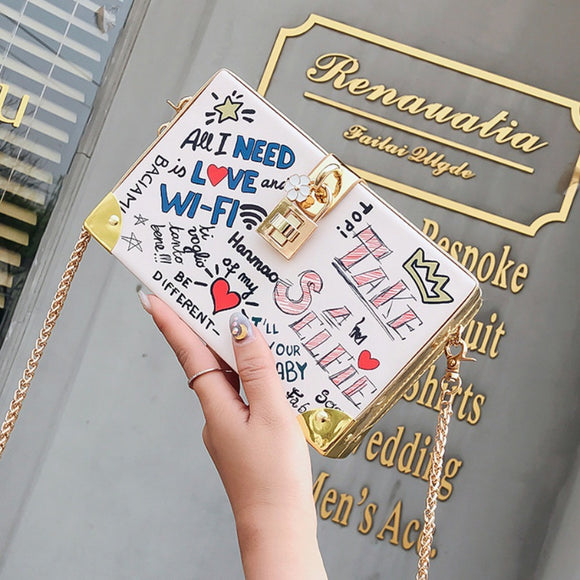 Renauvatia
Failai Ulgde
Bespoke
uit
hirts
edding
Men's Acc
All I NEED
is LOVE and
WI-FI
BACIAMI
ti
voglio
tanto
bene!!!
Hanmao
of my
BE
DIFFERENT-
TOP!
TAKE
A
SELFIE
I'LL
YOUR
BABY